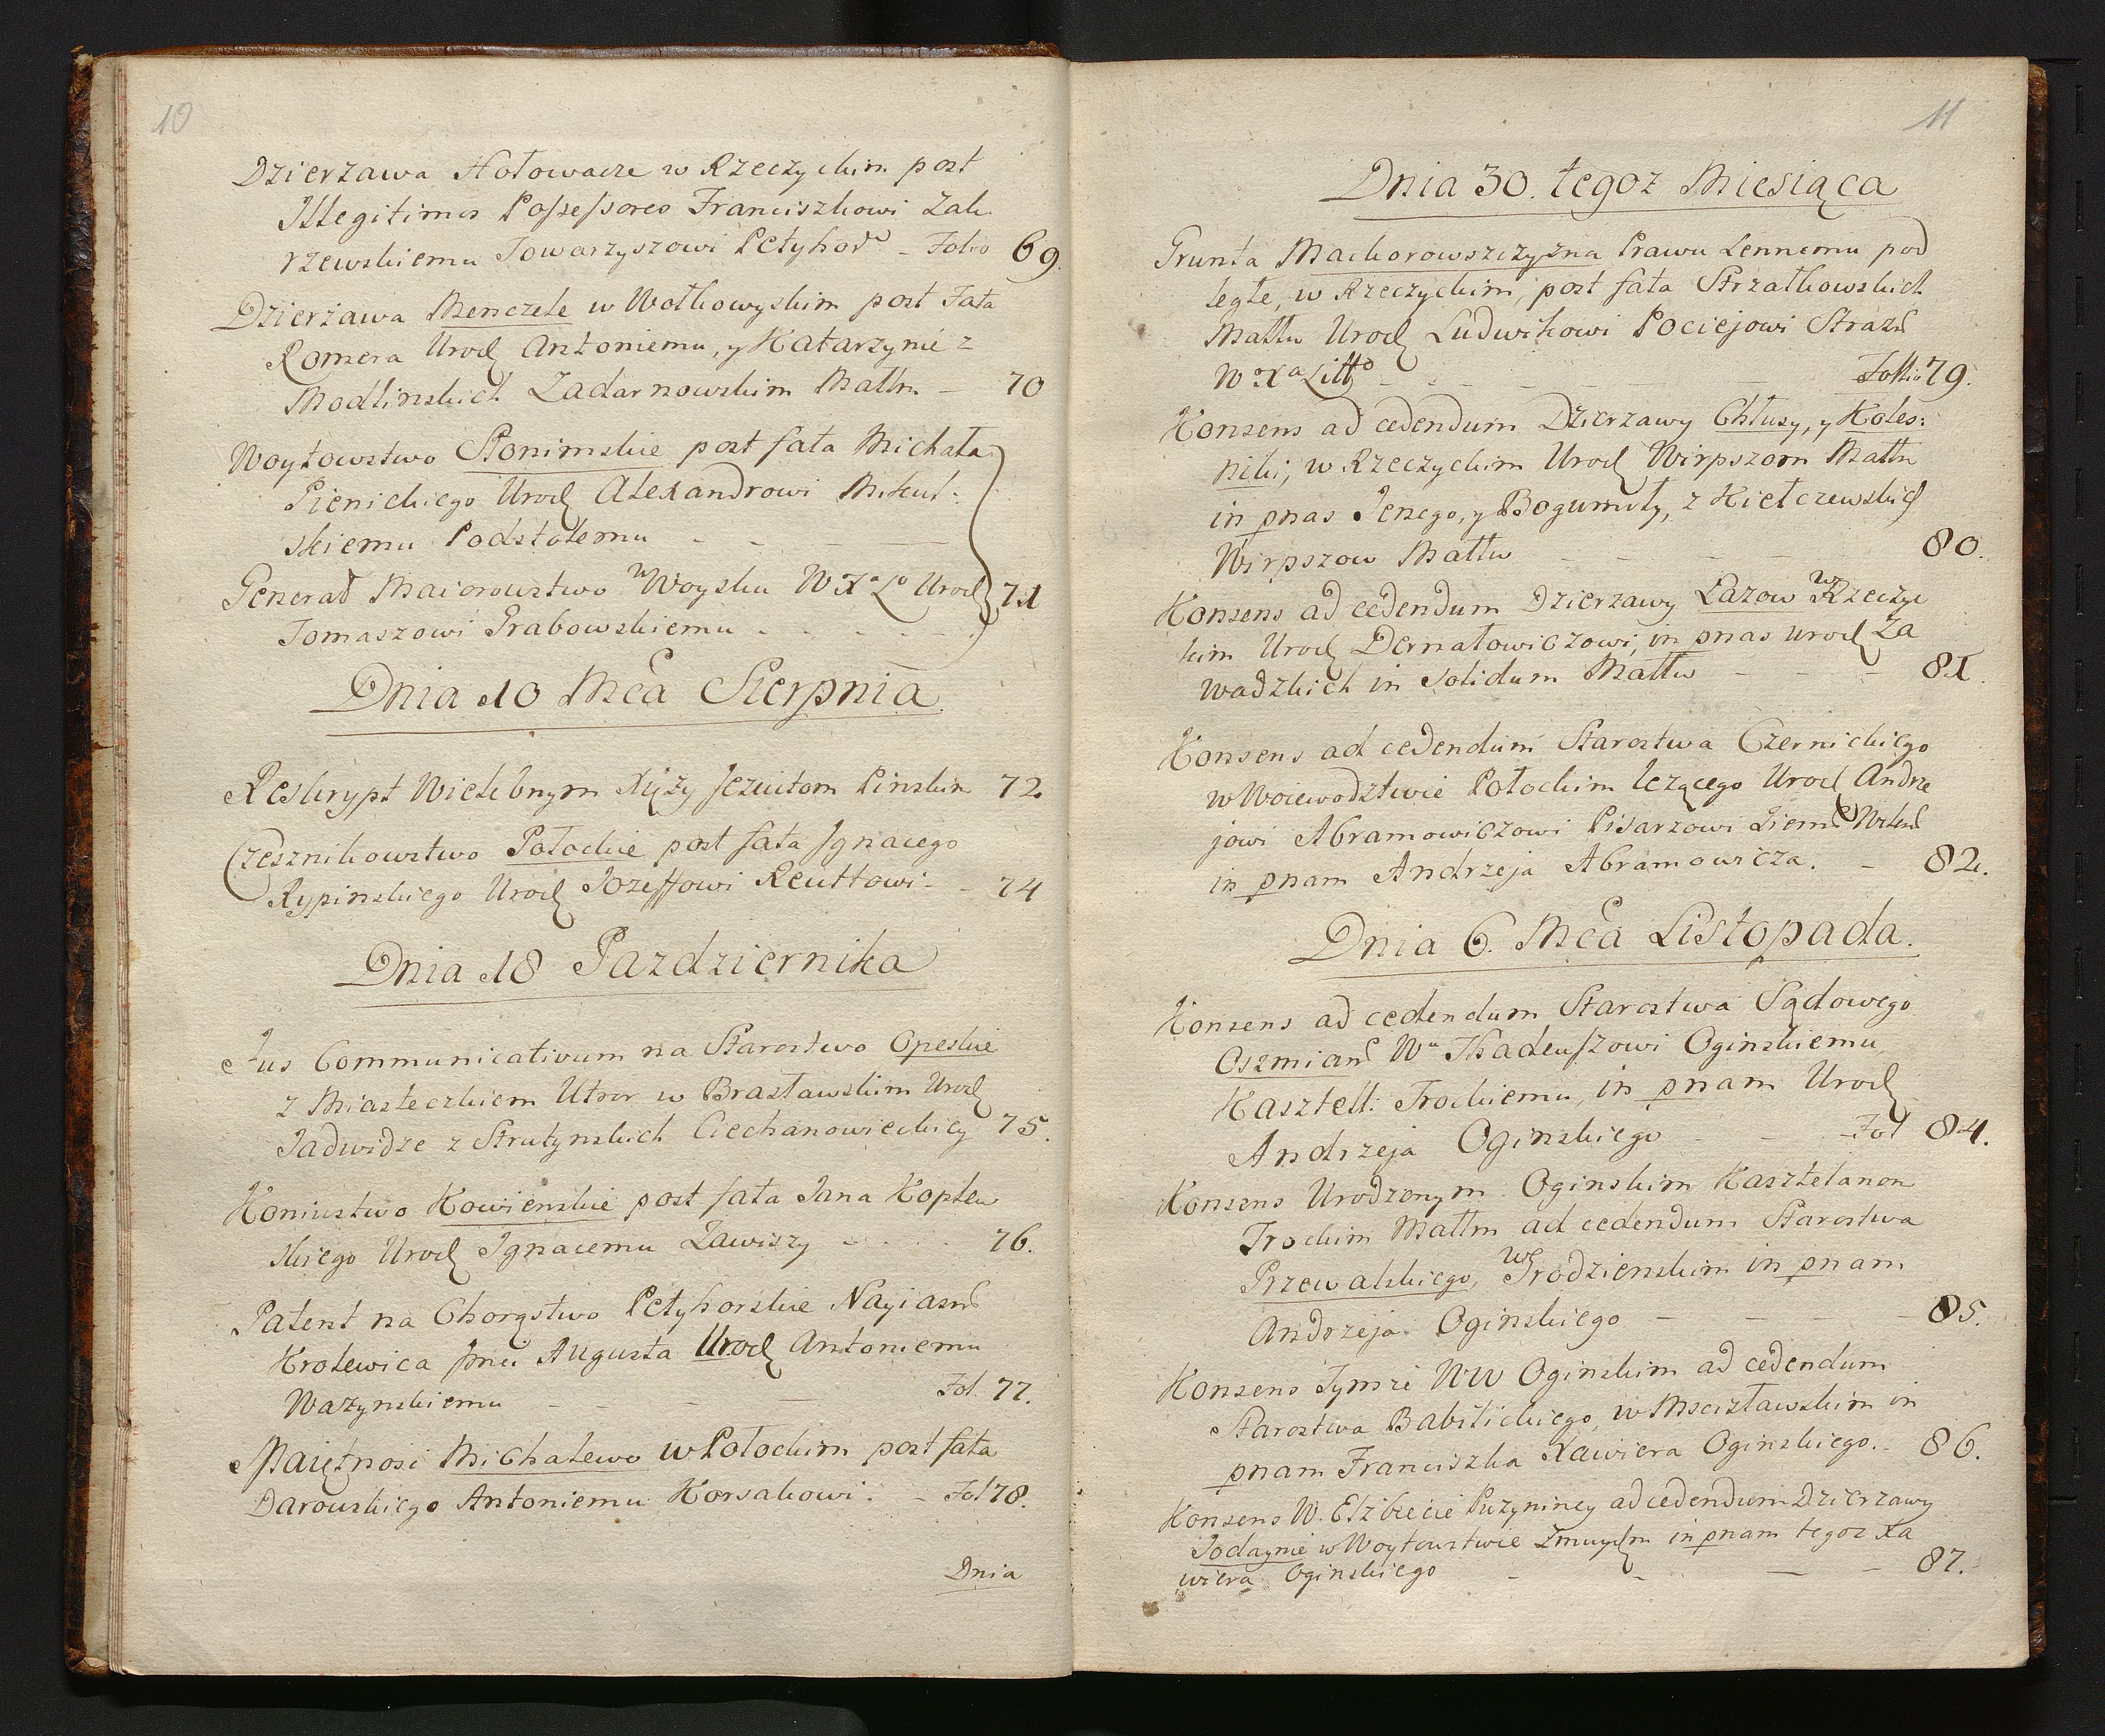 10
Dzierzawa Hołowacze w Rzeczyckim post
Illegitimos Possessores Franciszkowi Zak-
rzewskiemu Towarzyszowi Petyhor - Folio 69.
Dzierżawa Menczele w Wołkowyskim post Fata
Romera Urod Antoniemu, y Katarzynie z
Modlinskich Zadarnowskim Małłm - 70
Woytowstwo Słonimskie post fata Michała
Pienickiego Urod Alexandrowi Mikul:
skiemu Podstolemu - - - -
Generał Maiorowstwo w Woysku W X a L o Urod 71
Tomaszowi Grabowskiemu - - - -
Dnia 10 Mca Sierpnia.
Reskrypt Wielebnym Xięży Jezuitom Pinskim 72.
Czesznikowstwo Połockie post fata Jgnacego
Rypinskiego Urod Jozeffowi Reuttowi - - 74
Dnia 18 Pazdziernika
Jus Communicativum na Starostwo Opeskie
z Miasteczkiem Utnor w Brasławskim Urod
Jadwidze z Strutynskich Ciechanowieckiey 75.
Koniustwo Kowienskie post fata Jana Koptew
skiego Urod Jgnacemu Zawiszy - - - - 76.
Patent na Chorąstwo Petyhorskie Nayiasn
Krolewica Jmci Augusta Urod Antoniemu
Wazynskiemu - - - - Fol. 77.
Maiętnosi Michalewo w Połockim post fata
Darowskiego Antoniemu Korsakowi. - Fol 78.
Dnia
11
Dnia 30. tegoz Miesiąca
Grunta Machorowszczyzna Prawu Lennemu pod
ległe, w Rzeczyckim, post fata Strzałkowskich
Małłu Urod Ludwikowi Pociejowi Straz
W o X a Litto - - - - Follio 79.
Konsens ad cedendum Dzierzawy Chłusy, y Koles:
niki; w Rzeczyckim Urod Wirpszom Małłn
in pnas Jenego, y Bogumiły, z Kiełczewskich
Wirpszow Małłw - - - - 80.
Konsens ad cedendum Dzierzawy Łazow w Rzeczyc
kim Urod Dernałowiczowi, in pnas Urod Za
wadzkich in Solidum Małłw - - - 81.
Konsens ad cedendum Starostwa Czernickiego
w Woiewodztwie Połockim leżącego Urod Andrze
jowi Abramowiczowi Pisarzowi Ziem Wilen
in pnam Andrzeja Abramowicza. - 82.
Dnia 6. Mca Listopada.
Konsens ad cedendum Starostwa Sądowego
Oszmian W u Thadeuszowi Oginskiemu
Kasztell: Trockiemu, in pnam Urod
Andrzeja Oginskiego - - Fol 84.
Konsens Urodzonym Oginskim Kasztelanom
Trockim Małłm ad cedendum Starostwa
Przewalskiego, w Grodzienskim in pnam
Andrzeja Oginskiego - - - - 85.
Konsens Tymże WW Oginskim ad cedendum
Starostwa Babilickiego, w Mscisławskim in
pnam Franciszka Xawiera Oginskiego. - 86.
Konsens W. Elzbiecie Puzyniney ad cedendum Dzierzawy
Jodaynie w Woytowstwie Zmuydm in pnam tegoz Xa
wiera Oginskiego - - - - 87.